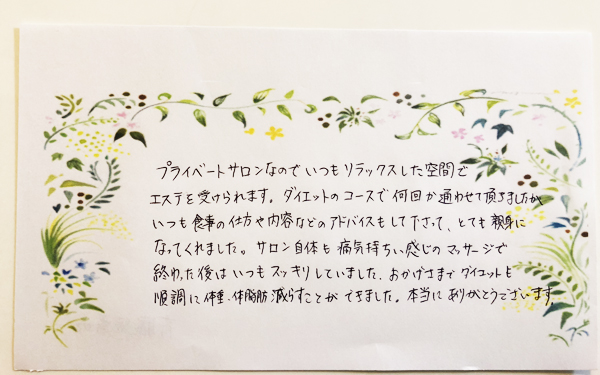 プライベートサロンなのでいつもリラックスした空間で
エステを受けられます。ダイエットのコースで何回か通わせて頂きましたが、
いつも食事の仕方や内容などのアドバイスもして下さって、とても親身に
なってくれました。サロン自体も痛気持ちい感じのマッサージで
終わた後はいつもスッキリしていました、おかげさまでダイエットも
順調に体重・体脂肪減らすことができました。本当にありがとうございます